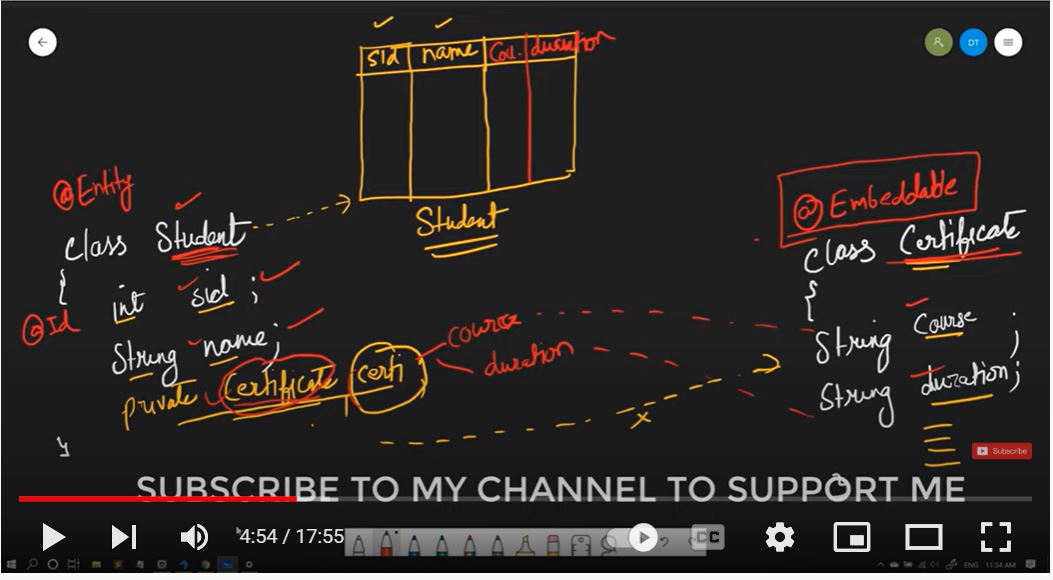 sid name Cou. duration
DT
@Entity
class Student
{ int sid ;
@Id
String name;
private Certificate certi
}
course
duration
Student
@ Embeddable
class Certificate
{
String Course ;
String duration;
x
Subscribe
SUBSCRIBE TO MY CHANNEL TO SUPPORT ME
4:54 / 17:55
CC
ENG 11:34 AM